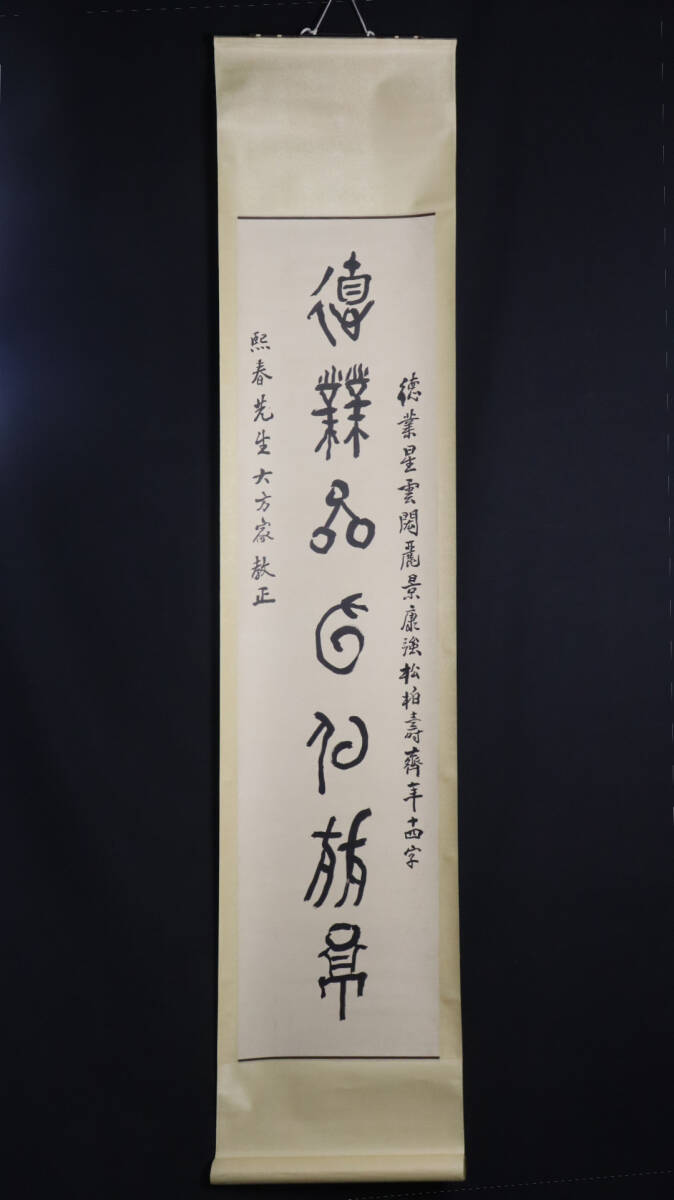 德業星雲閎麗景康強松柏壽齊年十四字
德業星雲閎麗景
熙春先生大方家教正